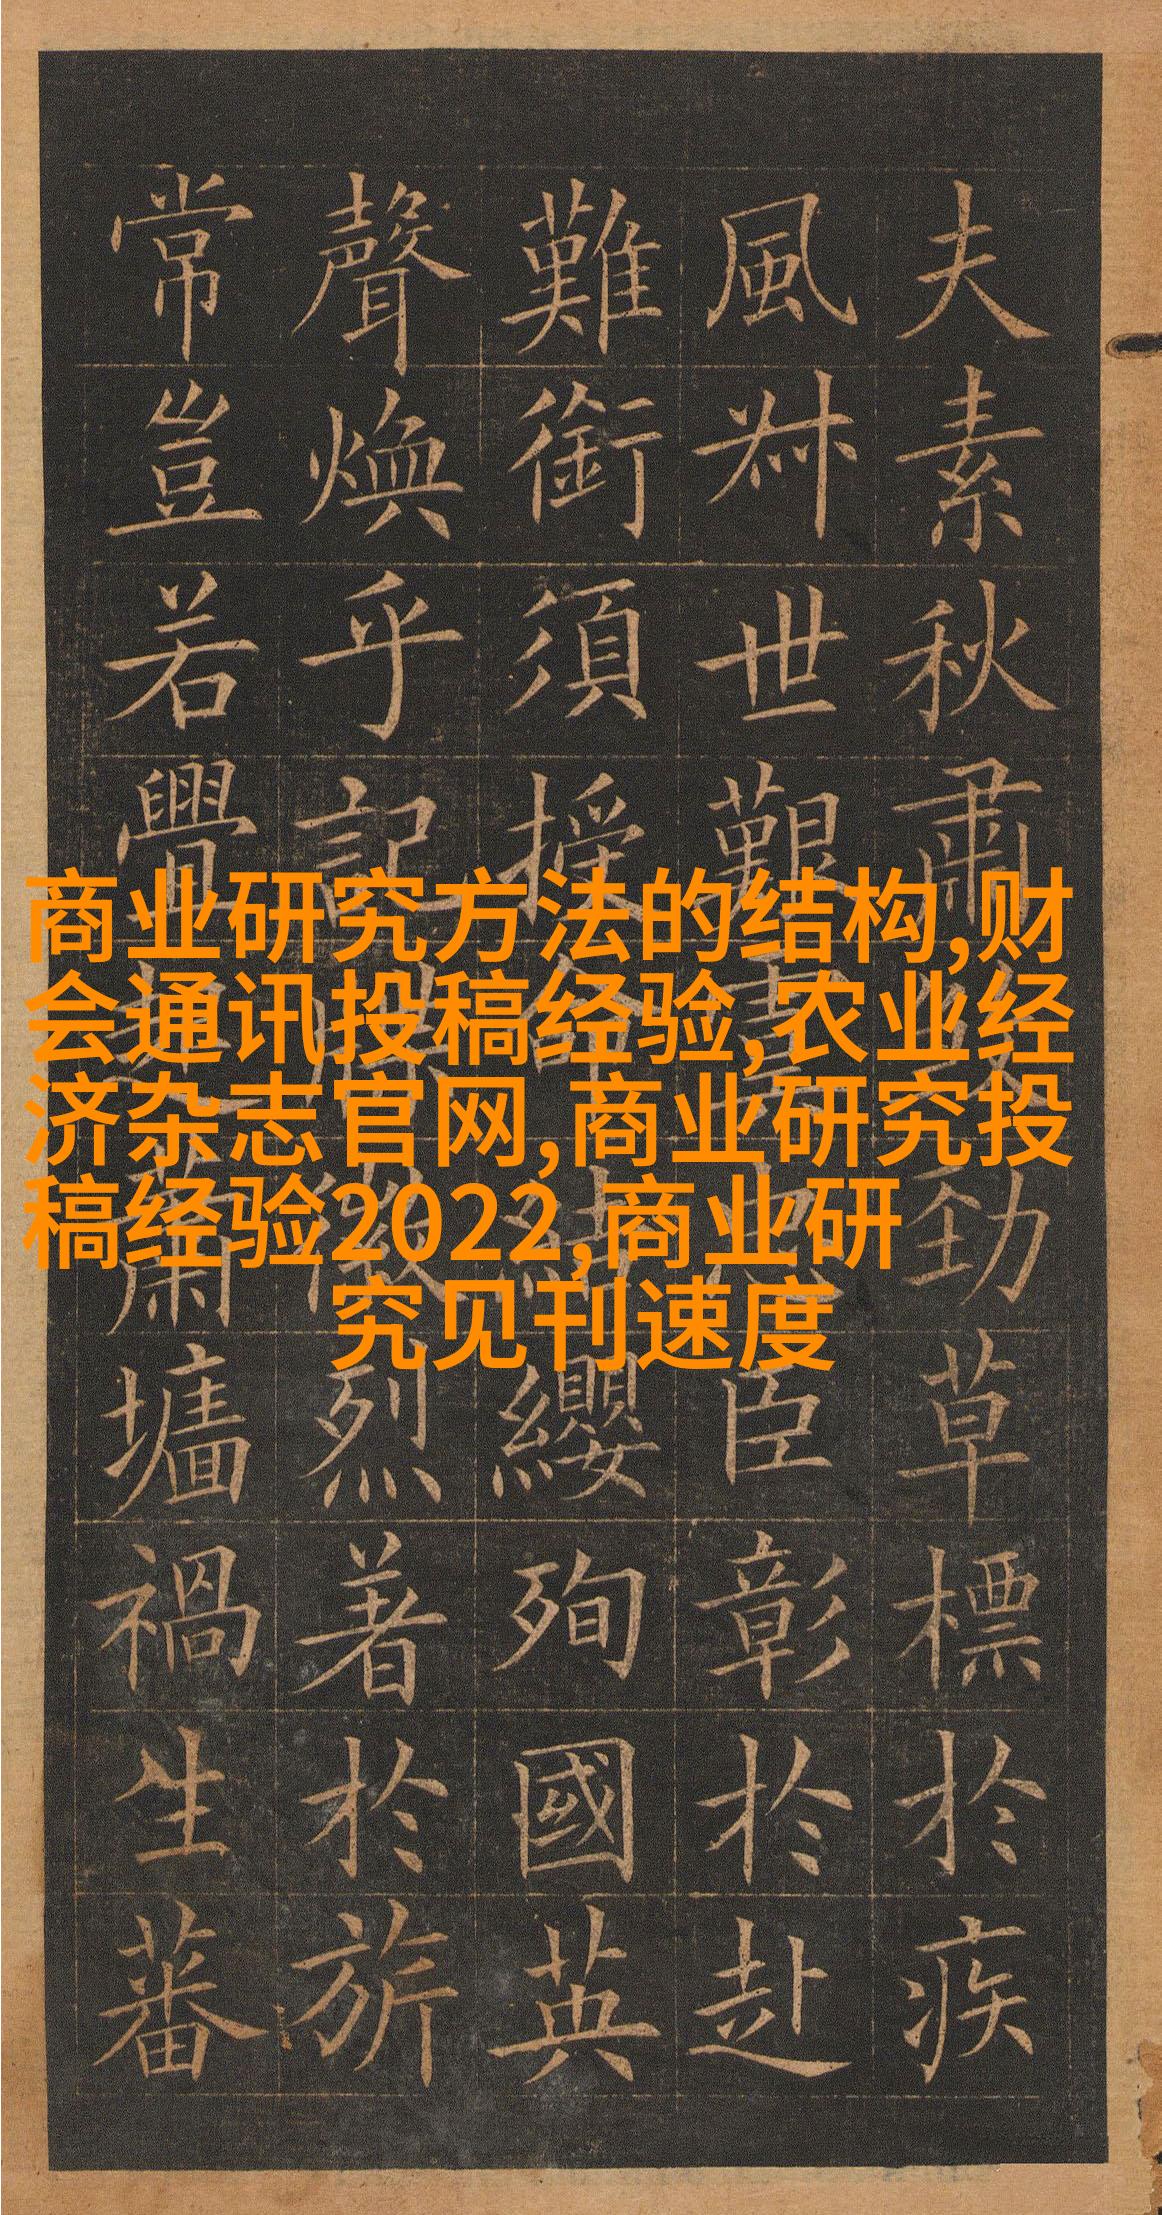 夫素秋肅勁草標於疾
風叔世艱虞忠臣彰於赴
難銜須授命結纓殉國英
聲煥乎記徽烈著於旂
常豈若舋起蕭墻禍生蕃
商业研究方法的结构,财
会通讯投稿经验,农业经
济杂志官网,商业研究投
稿经验2022,商业研
究见刊速度